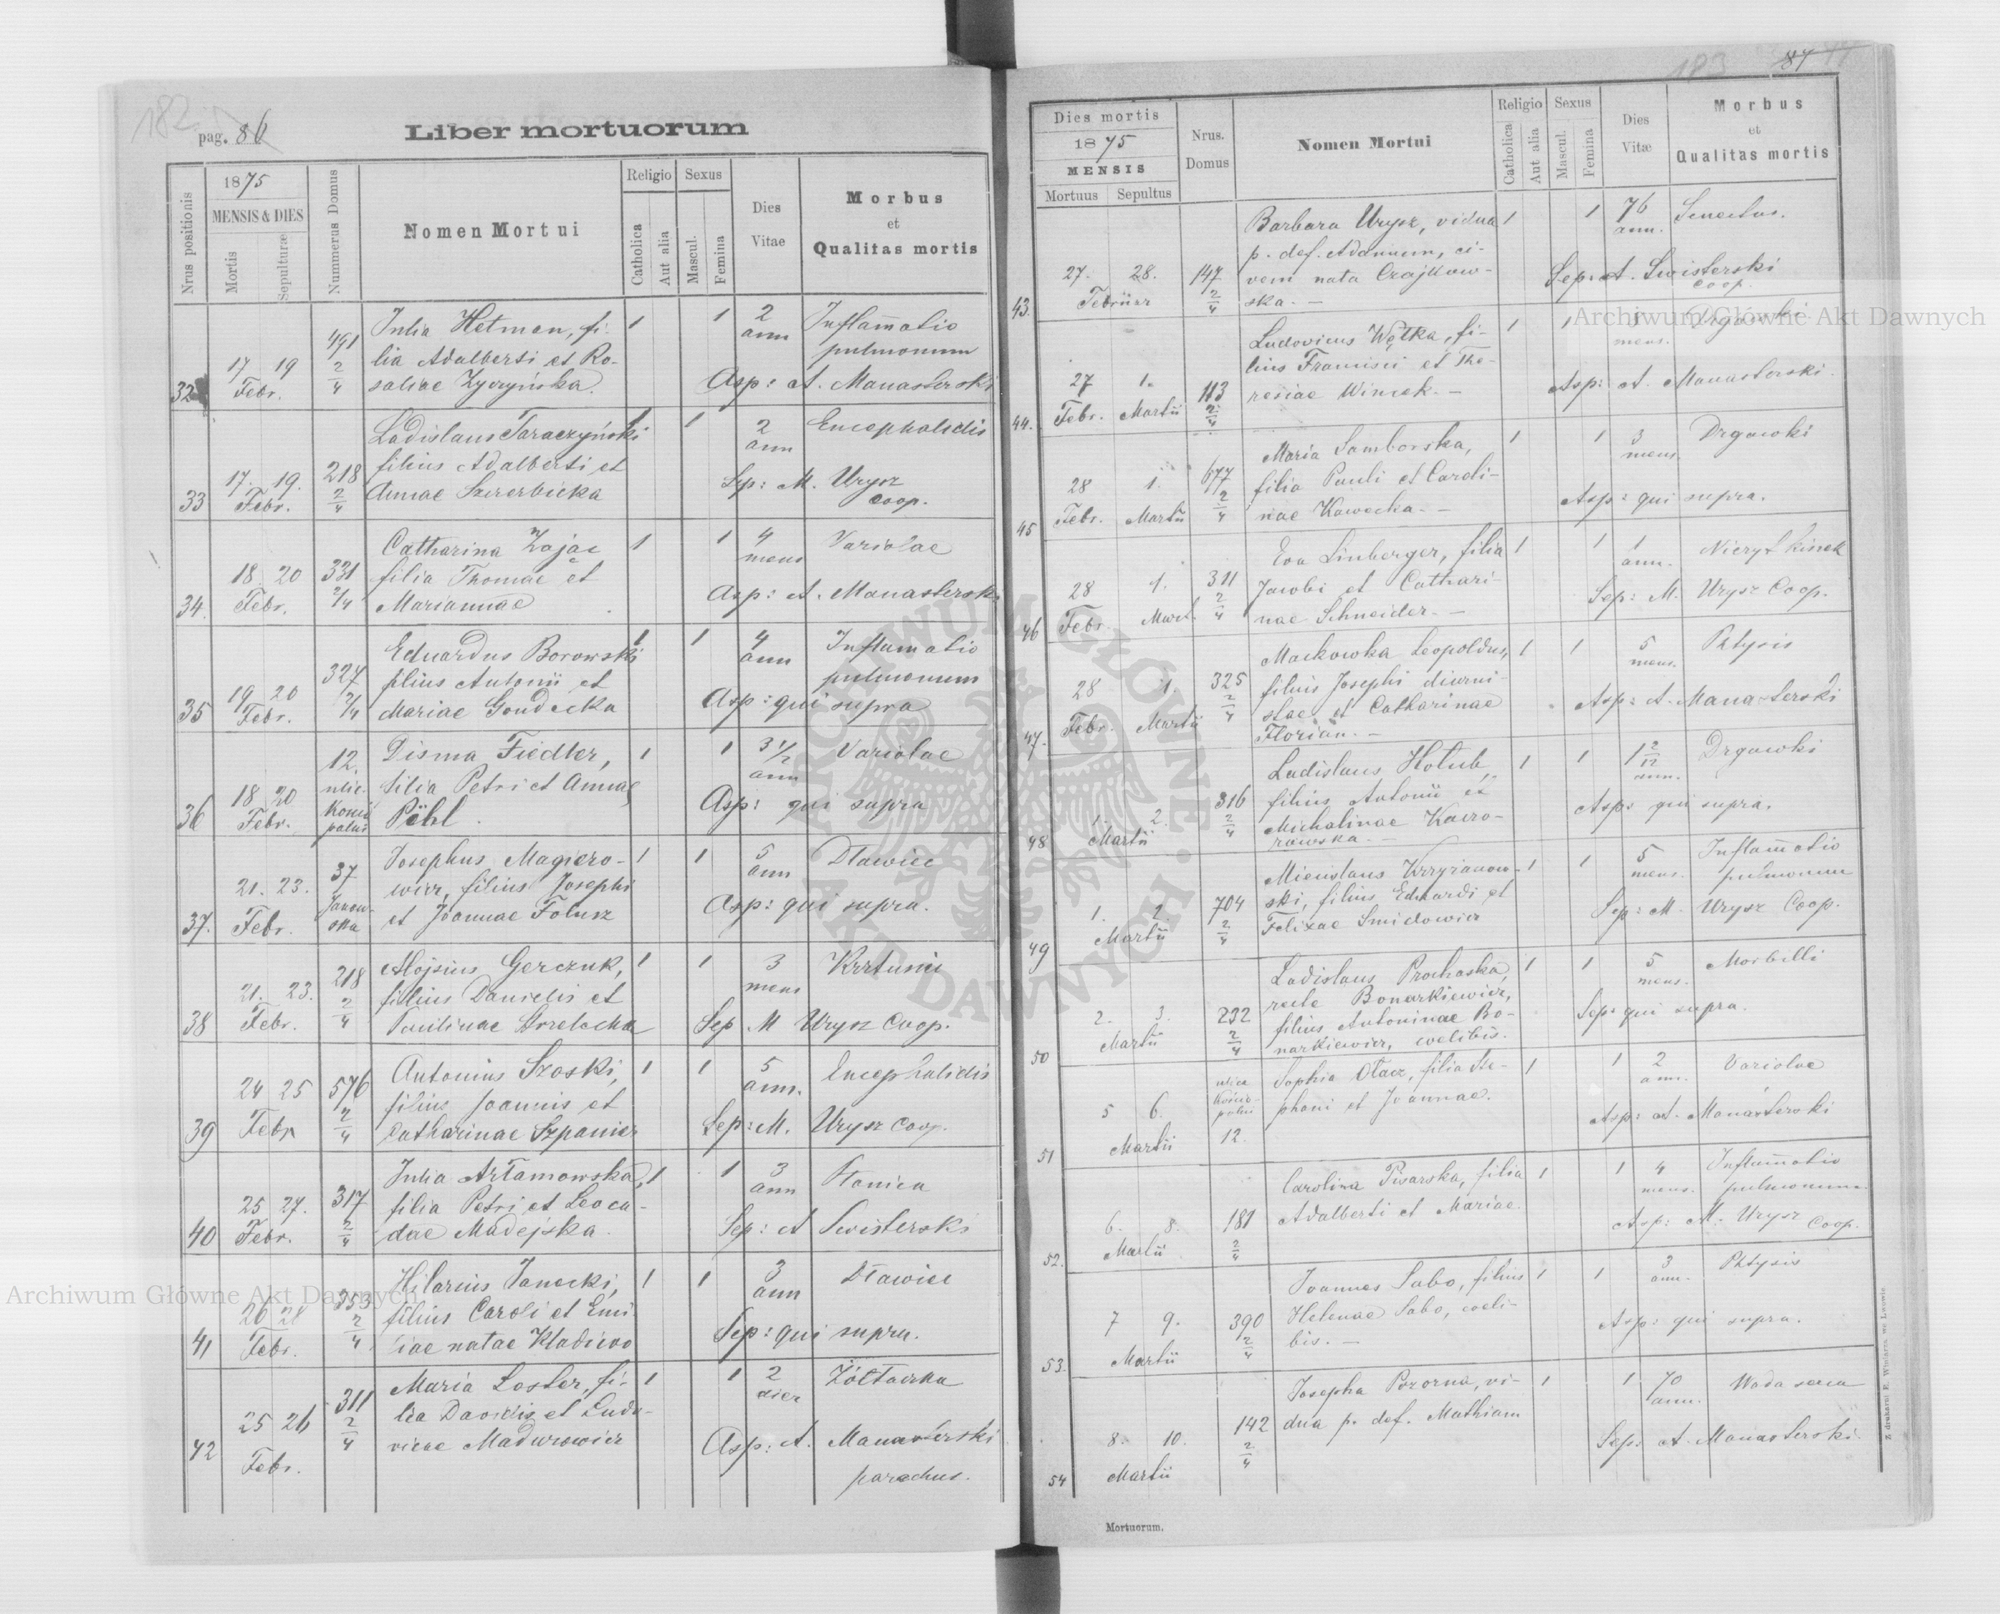 182
pag. 86
Liber mortuorum
Nrus positionis
1875
MENSIS & DIES
Mortis
Sepulturæ
Nummerus Domus
Nomen Mortui
Religio
Catholica
Aut alia
Sexus
Mascul.
Femina
Dies
Vitae
Morbus
et
Qualitas mortis
32 17 19 Febr. 491 2/4
Julia Hetman, fi-
lia Adalberti et Ro-
saliae Zyczyńska.
1 1 2 ann
Inflam̄atio
pulmonum
Asp: A. Manasterski
33 17. 19. Febr. 218 2/4
Ladislaus Taraczyński
filius Adalberti et
Annae Szczerbicka
1 1 2 ann
Encephalidis
Sep: M. Urysz
Coop.
34. 18. 20 Febr. 331 2/4
Catharina Zając
filia Thomae et
Mariannae
1 1 4 mens
Variolae
Asp: A. Manasterski
35 19. 20 Febr. 327 2/4
Eduardus Borowski
filius Antonii et
Mariae Gondecka
1 1 4 ann
Inflamatio
pulmonum
Asp: qui supra
36 18 20 Febr. 12.
Disma Fiedler,
filia Petri et Annae
Pöhl.
1 1 3 1/2 ann
Variolae
Asp: qui supra
37. 21. 23. Febr. 37 Janow-
ska
Josephus Magiero-
wicz, filius Josephi
et Joannae Folusz
1 1 5 ann
Dławiec
Asp: qui supra.
38 21. 23. Febr. 218 2/4
Alojsius Gerczuk,
filius Danielis et
Paulinae Strzelecka
1 1 3 mens
Krztusiec
Sep M Urysz Coop.
39 24 25 Febr 576 2/4
Antonius Szoski,
filius Joannis et
Catharinae Szpanier
1 1 5 ann.
Encephalidis
Sep: M. Urysz Coop.
40 25 27. Febr. 317 2/4
Julia Artamowska,
filia Petri et Leoca-
dae Madejska.
1 1 3 ann
Sep: A Swisterski
41 26 28 Febr. 353 2/4
Hilarius Janecki,
filius Caroli et Emi-
liae natae Kladivo
1 1 3 ann
Dławiec
Sep: qui supra.
42 25 26 Febr. 311 2/4
Maria Loster, fi-
lia Davidis et Ludo-
vicae Madurowicz
1 1 2
Żółtaczka
Asp: A. Manasterski
parochus.
183
87
Dies mortis
1875
MENSIS
Mortuus Sepultus
Nrus.
Domus
Nomen Mortui
Religio
Catholica
Aut alia
Sexus
Mascul.
Femina
Dies
Vitæ
Morbus
et
Qualitas mortis
43. 27. 28. Februar 147 2/4
Barbara Urysz, vidua
p. def. Adamum, ci-
vem nata Czajkow-
ska. –
1 1 76 ann.
Senectus.
Sep: A. Swisterski
Coop.
44. 27 1. Febr. Martii 113 2/4
Ludovicus Wętka, fi-
lius Francisci et The-
resiae Winiek. –
1 1 3 mens.
Drgawki
Asp: A. Manasterski.
45 28 1. Febr. Martii 677 2/4
Maria Samborska,
filia Pauli et Caroli-
nae Kawecka. –
1 1 3 mens.
Drgawki
Asp: qui supra.
46 28 1. Febr. Mart. 311 2/4
Eva Linberger, filia
Jacobi et Cathari-
nae Schneider. –
1 1 1 ann.
Sep: M. Urysz Coop.
47. 28 1. Febr. Martii 325 2/4
Mackowka Leopoldus,
filius Josephi diurni-
stae et Catharinae
Florian. –
1 1 5 mens.
Phtysis
Asp: A. Manasterski
48 1. 2. Martii 316 2/4
Ladislaus Hołub,
filius Antonii et
Michalinae Kacro-
rowska. –
1 1 1 2/12 ann.
Drgawki
Asp: qui supra.
49 1. 2. Martii 704 2/4
Mieceslaus Krzyżanow-
ski, filius Eduardi et
Felixae Smidowicz
1 1 5 mens.
Inflam̄atio
pulmonum
Sep: M. Urysz Coop.
50 2. 3. Martii 232 2/4
Ladislaus Prochaska,
recte Bonarkiewicz,
filius Antoninae Bo-
narkiewicz, coelibis.
1 1 5 mens.
Morbilli
Sep: qui supra.
51 5 6. Martii 12.
Sophia Otacz, filia Ste-
phani et Joannae.
1 1 2 ann.
Variolae
Asp: A. Manasterski
52. 6. 8. Martii 181 2/4
Carolina Pisarska, filia
Adalberti et Mariae.
1 1 4 mens.
Inflam̄atio
pulmonum
Asp: M. Urysz Coop.
53. 7 9. Martii 390 2/4
Joannes Sabo, filius
Helenae Sabo, coeli-
bis. –
1 1 3 ann.
Phtysis
Asp: qui supra.
54 8. 10. Martii 142 2/4
Josepha Pozorna, vi-
dua p. def. Mathiam
1 1 70 ann.
Woda serca
Sep: A. Manasterski.
Mortuorum.
Z drukarni E. Winiarza we Lwowie
Archiwum Główne Akt Dawnych
Archiwum Główne Akt Dawnych
ARCHIWUM GŁÓWNE AKT DAWNYCH